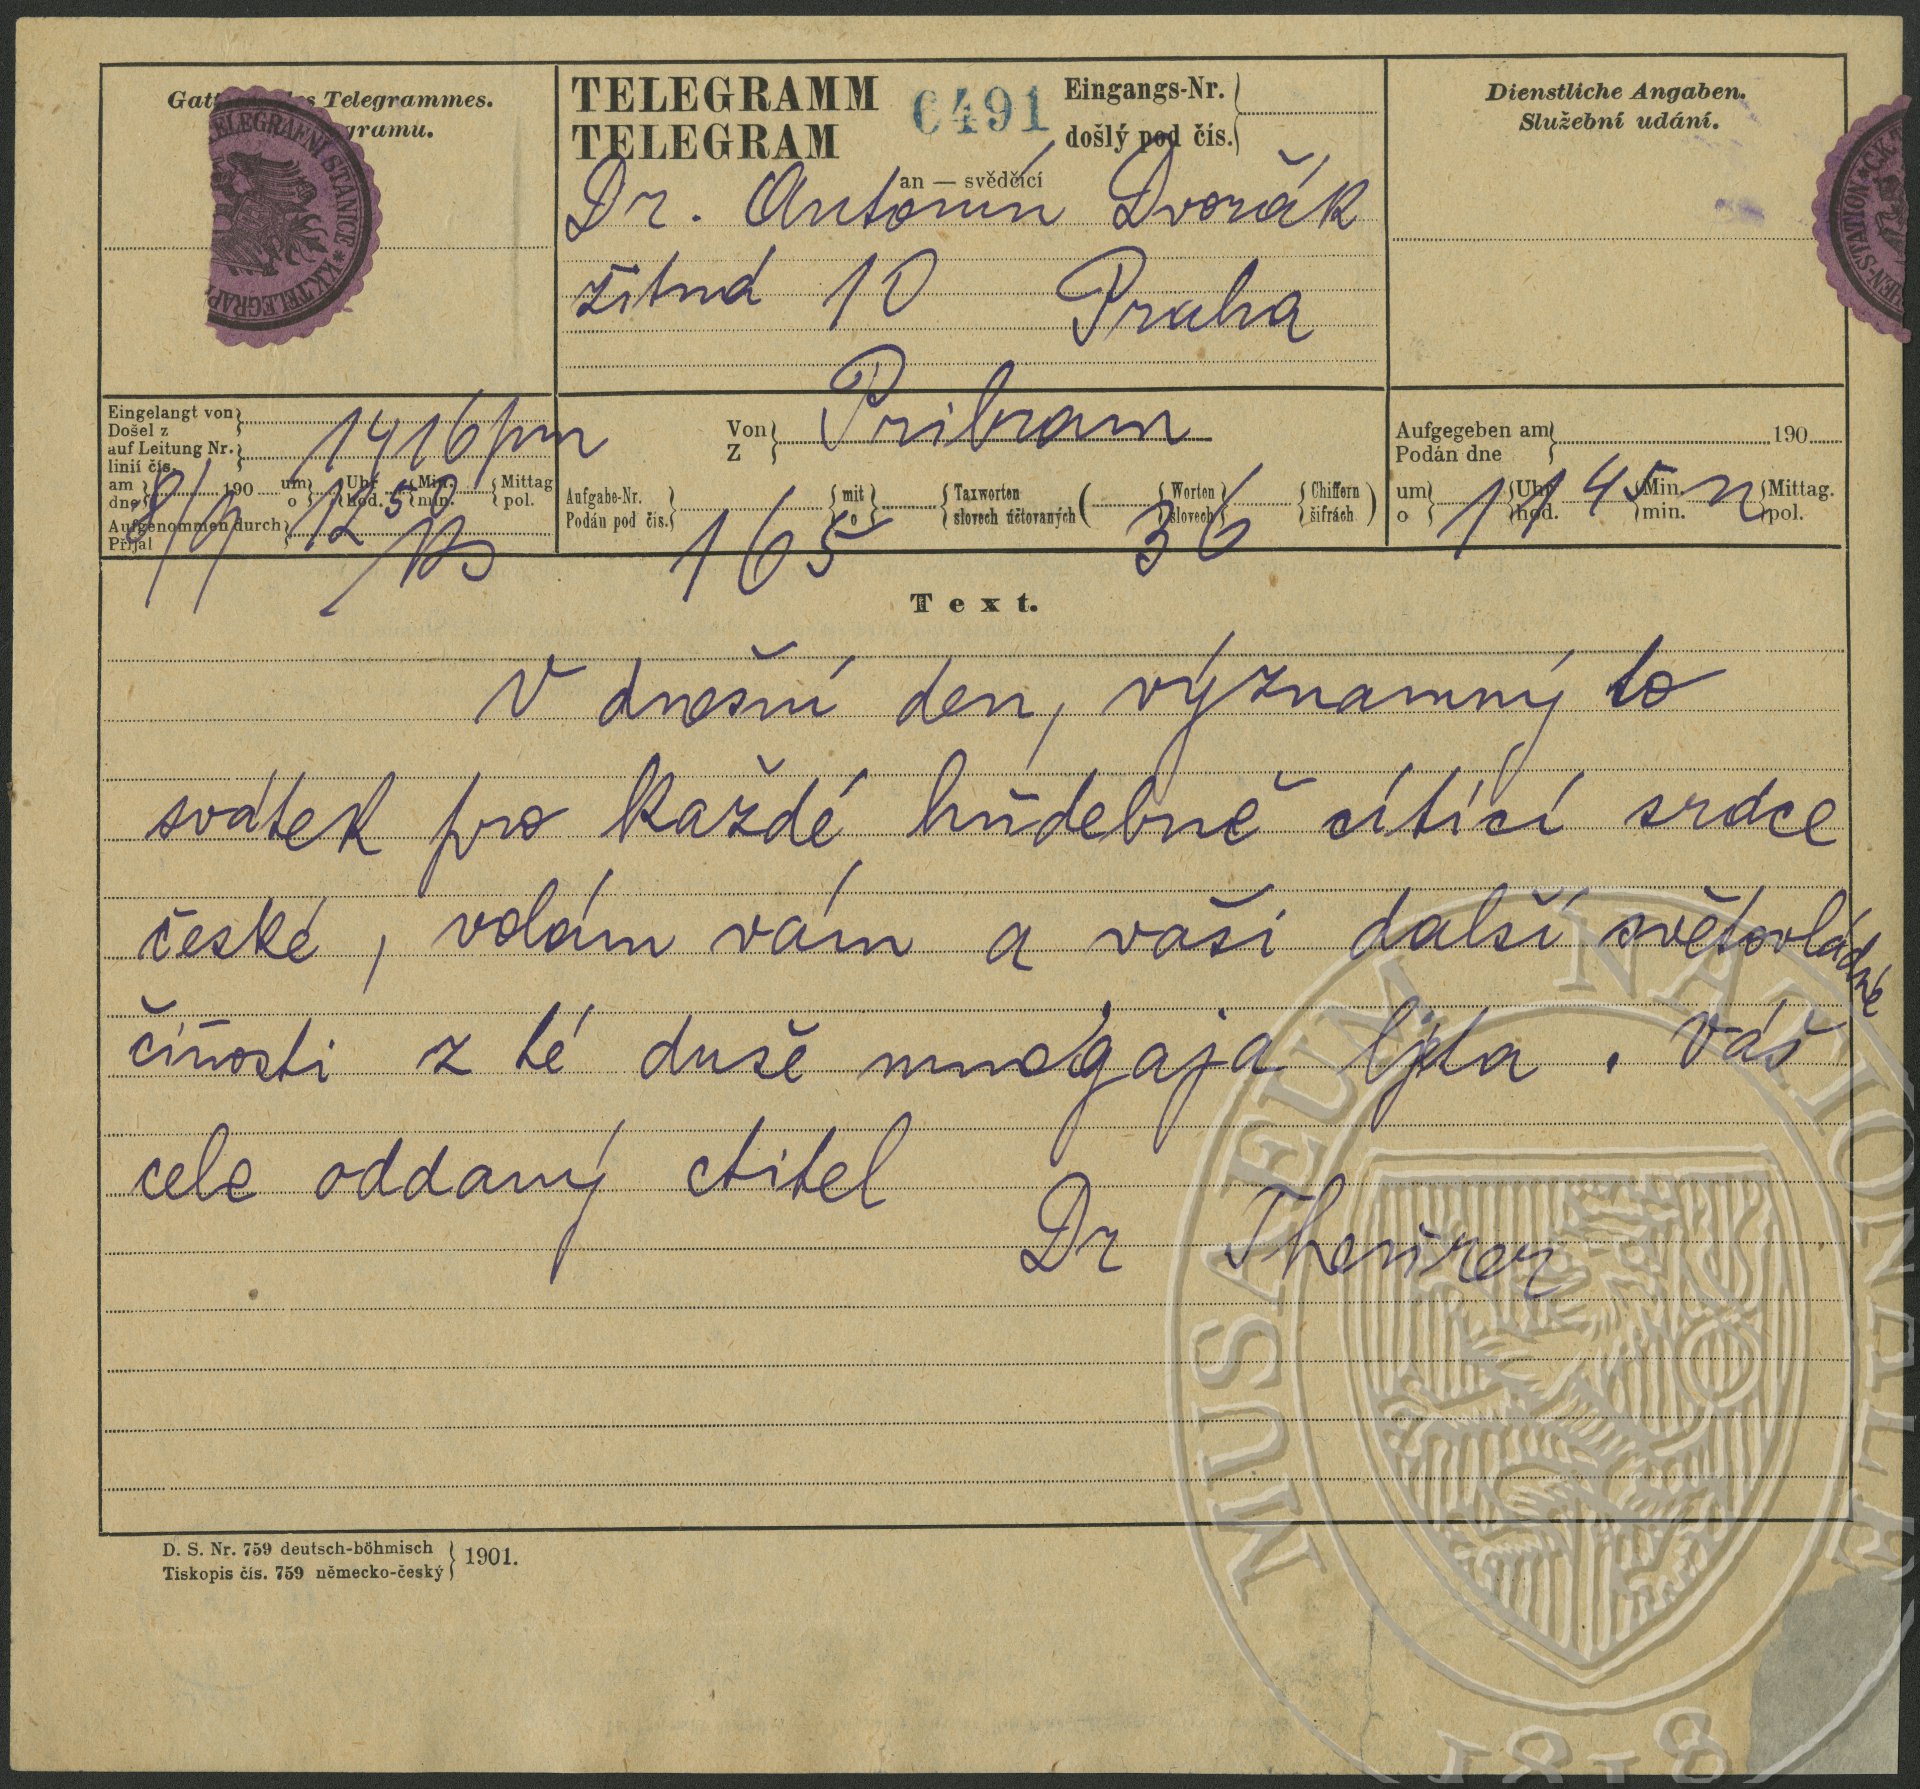 Gattung des Telegrammes.
TELEGRAMM
TELEGRAM
6491
Eingangs-Nr.
došlý pod čís.
Dienstliche Angaben.
Služební udání.
an — svědčící
Dr. Antonín Dvořák
žitná 10 Praha
TELEGRAFNÍ STANICE * K.K. TELEGRAP
Eingelangt von
Došel z
auf Leitung Nr.
linií čís.
1416 pm
am 190 um Uhr Min. Mittag
dne o hod. min. pol.
8/9 12 50
Aufgenommen durch
Přijal
Von
Z
Pribram
Aufgabe-Nr.
Podán pod čís.
165
mit
o
Taxworten
slovech účtovaných
Worten
slovech
36
Chiffern
šifrách
Aufgegeben am 190
Podán dne
um Uhr Min. Mittag.
o hod. min. pol.
11 45 n
Text.
V dnešní den, významný to
svátek pro každé hůdebně cítící srdce
české, volám vám a vaší další světovládné
činosti z té duše mnogaja ljeta. Váš
cele oddaný ctitel
Dr Theurer
D. S. Nr. 759 deutsch-böhmisch
Tiskopis čís. 759 německo-český
1901.
MUSAEUM NATIONALE
1818